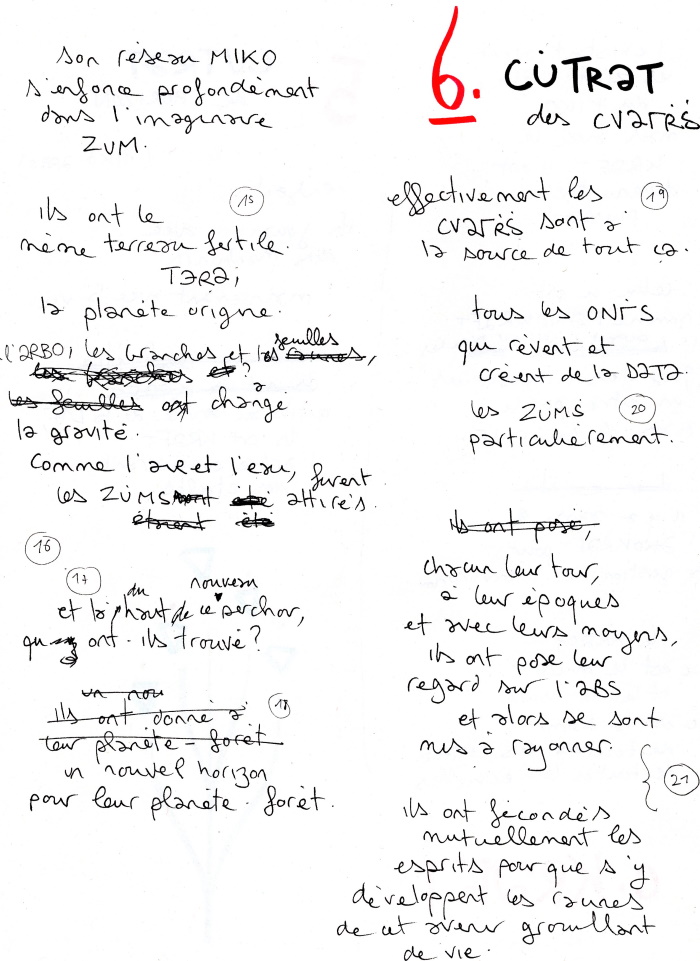 son réseau MIKO
s'enfonce profondément
dans l'imaginaire
ZUM.
15
ils ont le
même terreau fertile.
TERA,
la planète origine.
l'ARBO, les branches et les feuilles,
les branches et ?
les feuilles ont changé
la gravité.
comme l'air et l'eau, furent
les ZÜMS attirés.
étaient été
16
17
et là, du haut de ce nouveau perchoir,
qu' ont-ils trouvé ?
un nou
ils ont donné à 18
leur planète-forêt
un nouvel horizon
pour leur planète-forêt.
6. CÙTRAT
des CVATRÈS
effectivement les 19
CVATRÈS sont à
la source de tout ça.
tous les ONTS
qui rêvent et
créent de la DATA.
les ZÜMS 20
particulièrement.
ils ont posé,
chacun leur tour,
à leur époques
et avec leurs moyens,
ils ont posé leur
regard sur l'ABS
et alors se sont
mis à rayonner.
21
ils ont fécondés
mutuellement les
esprits pour que s'y
développent les racines
de cet avenir grouillant
de vie.